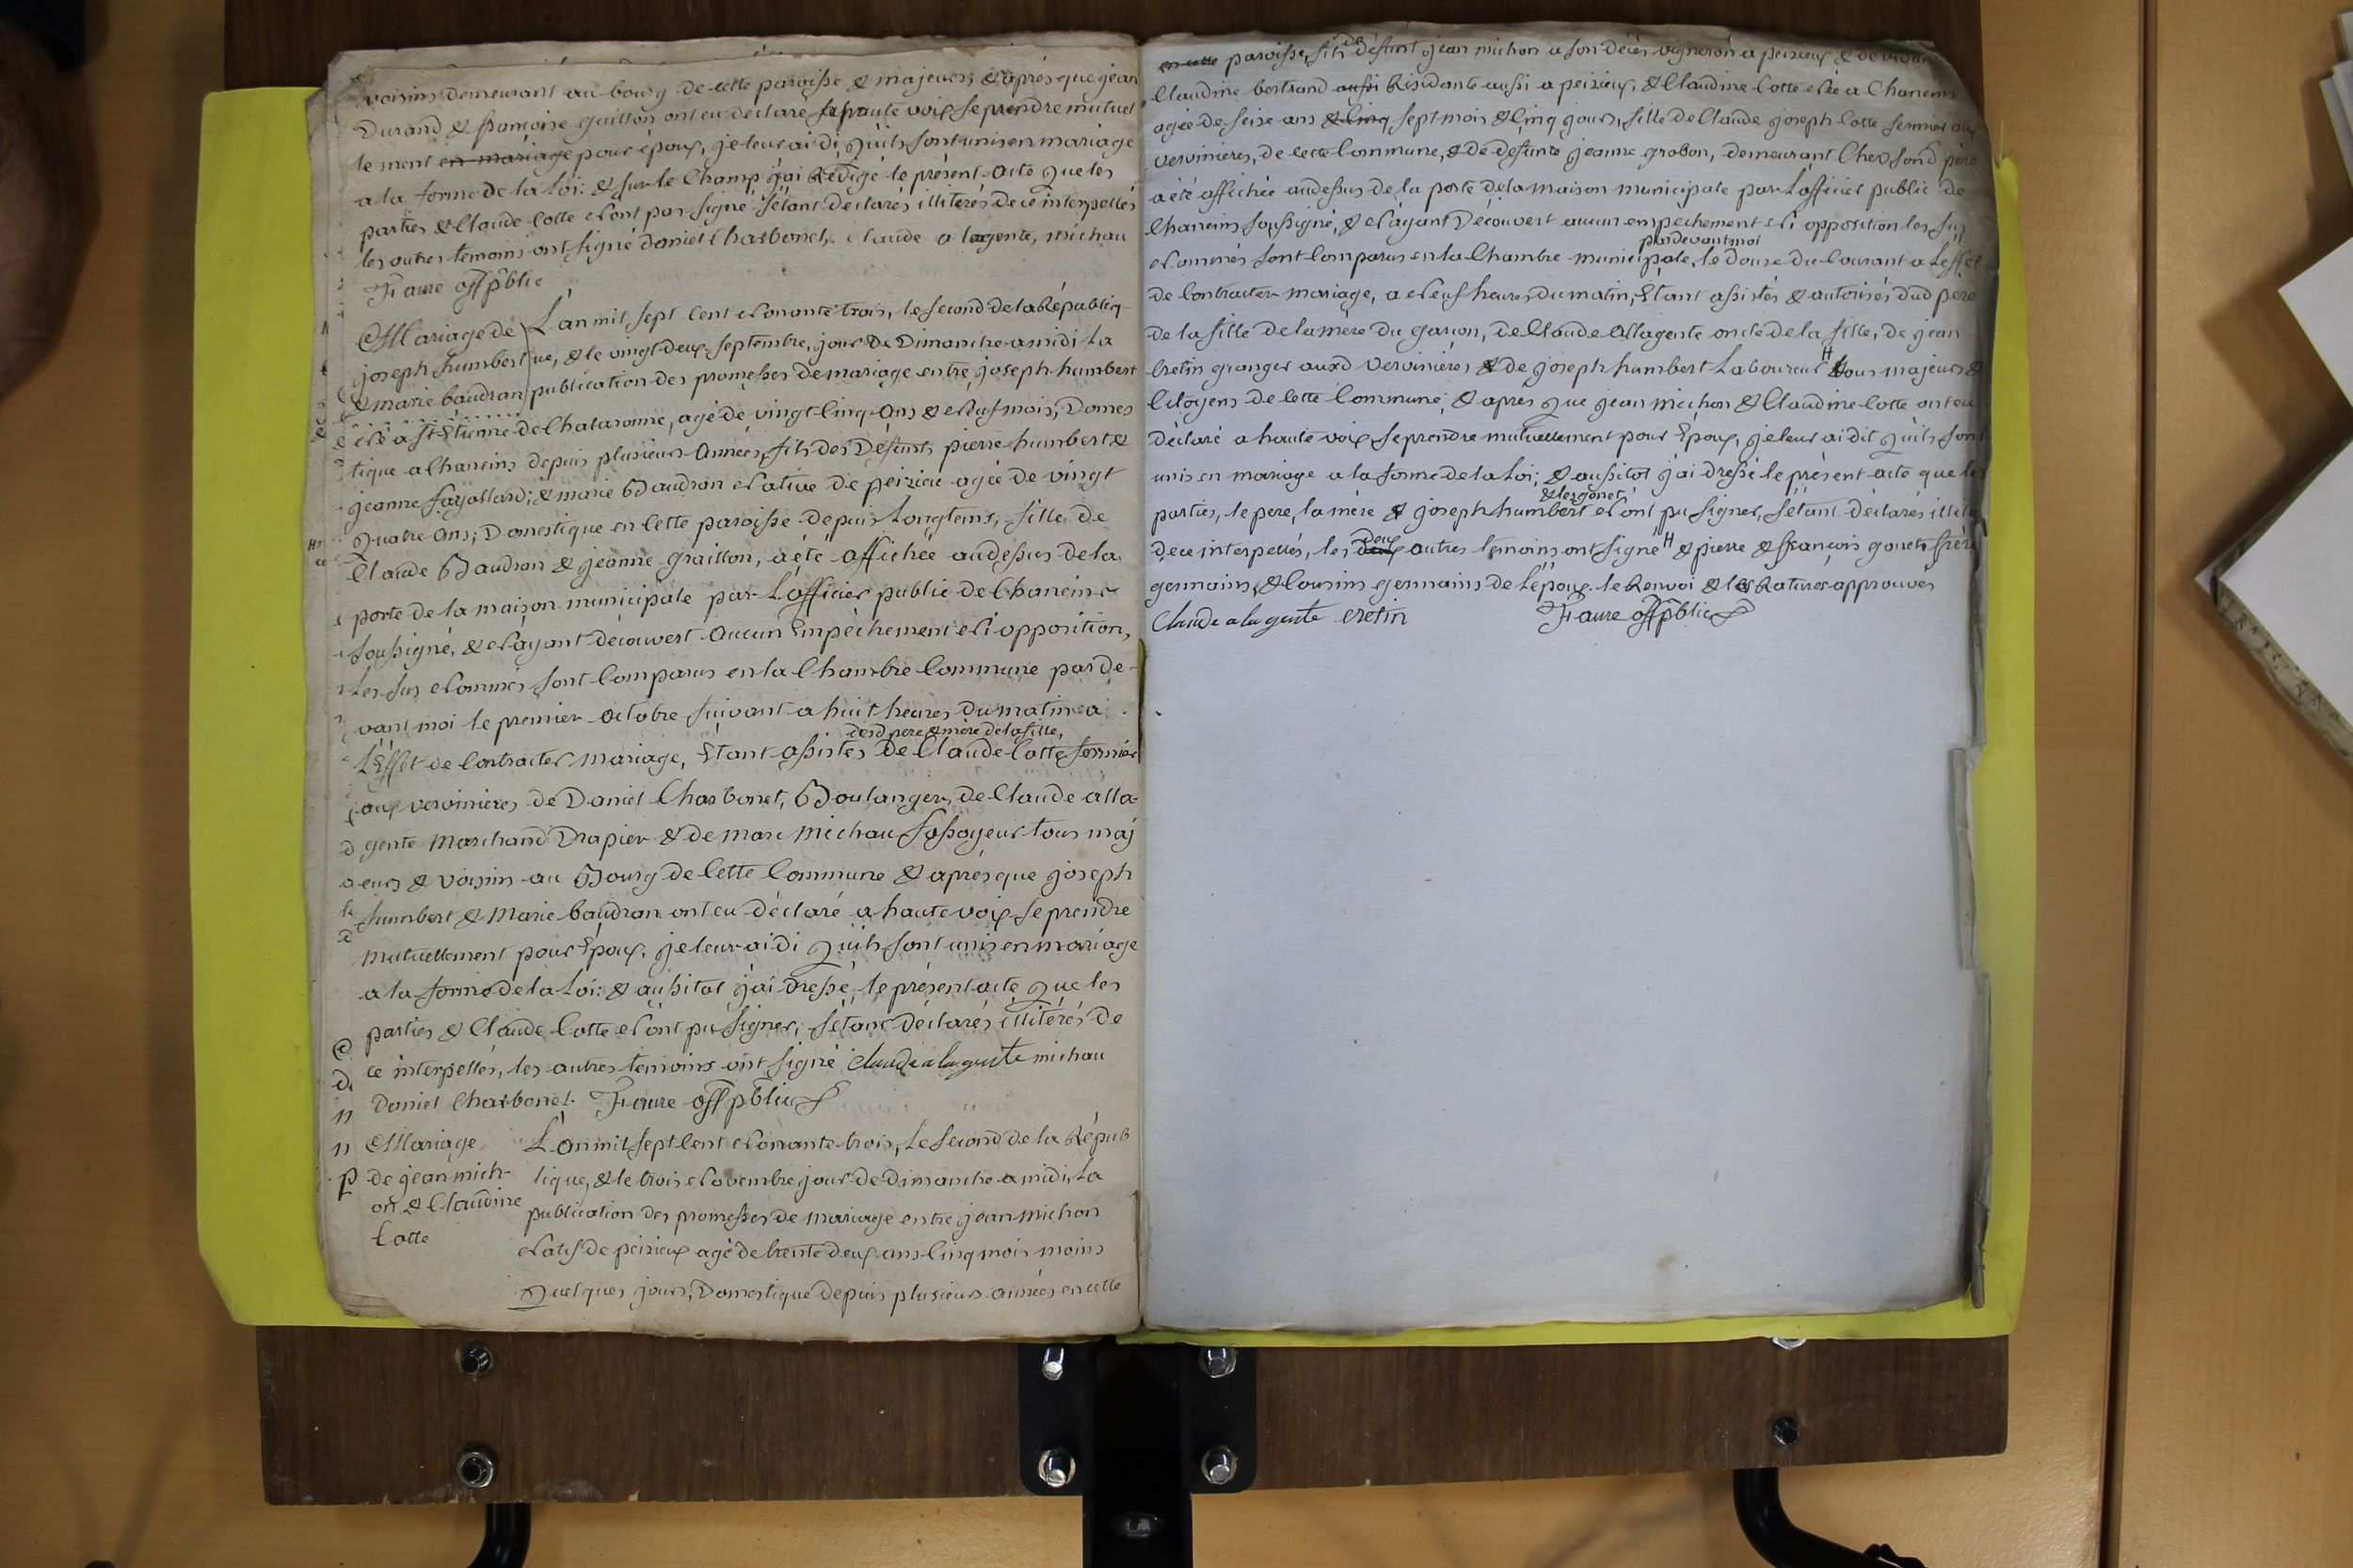 voisins demeurant au bourg de cette paroisse & majeurs & après que jean
Durand & françoise guillon ont eu déclaré a haute voix se prendre mutuel
lement en mariage pour époux, je leur ai di qu'ils sont unis en mariage
a la forme de la loi: & sur le champ j'ai Rédigé le présent acte que les
parties & Claude Cotte n'ont pas signé s'étant déclarés illitérés de ce interpellés
les autres témoins ont signé Daniel Charbonet, Claude a lagente, michau
Faure off pblic
Mariage de
joseph humbert
& marie baudran
L'an mil sept cent nonante trois, le second de la Républiq-
ue, & le vingt deux septembre, jour de Dimanche a midi La
publication des promesses de mariage entre joseph humbert
né a St Etienne de Chataronne, agé de vingt cinq ans & neuf mois, Domes
tique a Chaneins depuis plusieurs années, fils des Défunts pierre humbert &
jeanne fayollard; & marie Baudran native de peizieu agée de vingt
quatre ans; Domestique en cette paroisse depuis Longtems, fille de
Claude Baudran & jeanne graillon, a été affichée au dessus de la
porte de la maison municipale par L'officier public de Chaneins
soussigné, & n'ayant découvert aucun Empêchement ni opposition,
Les sus nommés sont comparus en la Chambre Commune parde-
vant moi le premier octobre suivant a huit heures du matin a
desd pere & mère de la fille,
L'Effet de contracter mariage, Etant assistés de Claude Cotte fermier
aux vervinieres de Daniel Charbonet, Boulanger, de Claude alla-
gente Marchand Drapier & de marc michau fossoyeur tous maj
eurs & voisins au Bourg de cette Commune & après que joseph
humbert & Marie baudran ont eu déclaré a haute voix se prendre
mutuellement pour Epoux, je leur ai di qu'ils sont unis en mariage
a la forme de la Loi: & aussitot j'ai dressé le présent acte que les
parties & Claude Cotte n'ont pu signer, s'étant déclarés illitérés de
ce interpellés, les autres témoins ont signé Claude alagente michau
Daniel Charbonet. Faure off pblic
Mariage
de jean mich-
on & Claudine
Cotte
L'an mil sept cent nonante trois, Le second de la Répub
lique, & le trois novembre jour de dimanche a midi, La
publication des promesses de mariage entre jean michon
natif de peizieux agé de trente deux ans cinq mois moins
quelques jours, Domestique depuis plusieurs années en cette
en cette paroisse, fils de défunt jean michon a son décès vigneron a peizieux & de vivante
Claudine bertrand aussi Résidante aussi a peizieux, & Claudine Cotte née a Chaneins
agée de seise ans & cinq sept mois & cinq jours, fille de Claude joseph Cotte fermier aux
vervinieres, de cette Commune, & de defunte jeanne grobon, demeurant Chez sond père
a été affichée au dessus de la porte de la maison municipale par L'officier public de
Chaneins soussigné, & n'ayant Découvert aucun empêchement ni opposition les sus
pardevant moi
nommés sont comparus en la Chambre municipale, le douse du Courant a L'effet
de contracter mariage, a neuf heures du matin, Etant assistés & autorisés dud pere
de la fille de la mère du garçon, de Claude Allagente oncle de la fille, de jean
Cretin granger auxd vervinières & de joseph humbert Laboureur H tous majeurs &
Citoyens de cette Commune, & après que jean michon & Claudine Cotte ont eu
déclaré a haute voix se prendre mutuellement pour Epoux, je leur ai dit qu'ils sont
unis en mariage a la forme de la Loi; & aussitot j'ai dressé le présent acte que les
& les gonet,
parties, le pere, la mére & joseph humbert n'ont pu signer, s'étant déclarés illité
deux
de ce interpellés, les deux autres témoins ont signé H & pierre & françois gonets frères
germains, & Cousins germains de L'époux. le Renvoi & les Ratures approuvés
Claude alagente cretin Faure off pblic